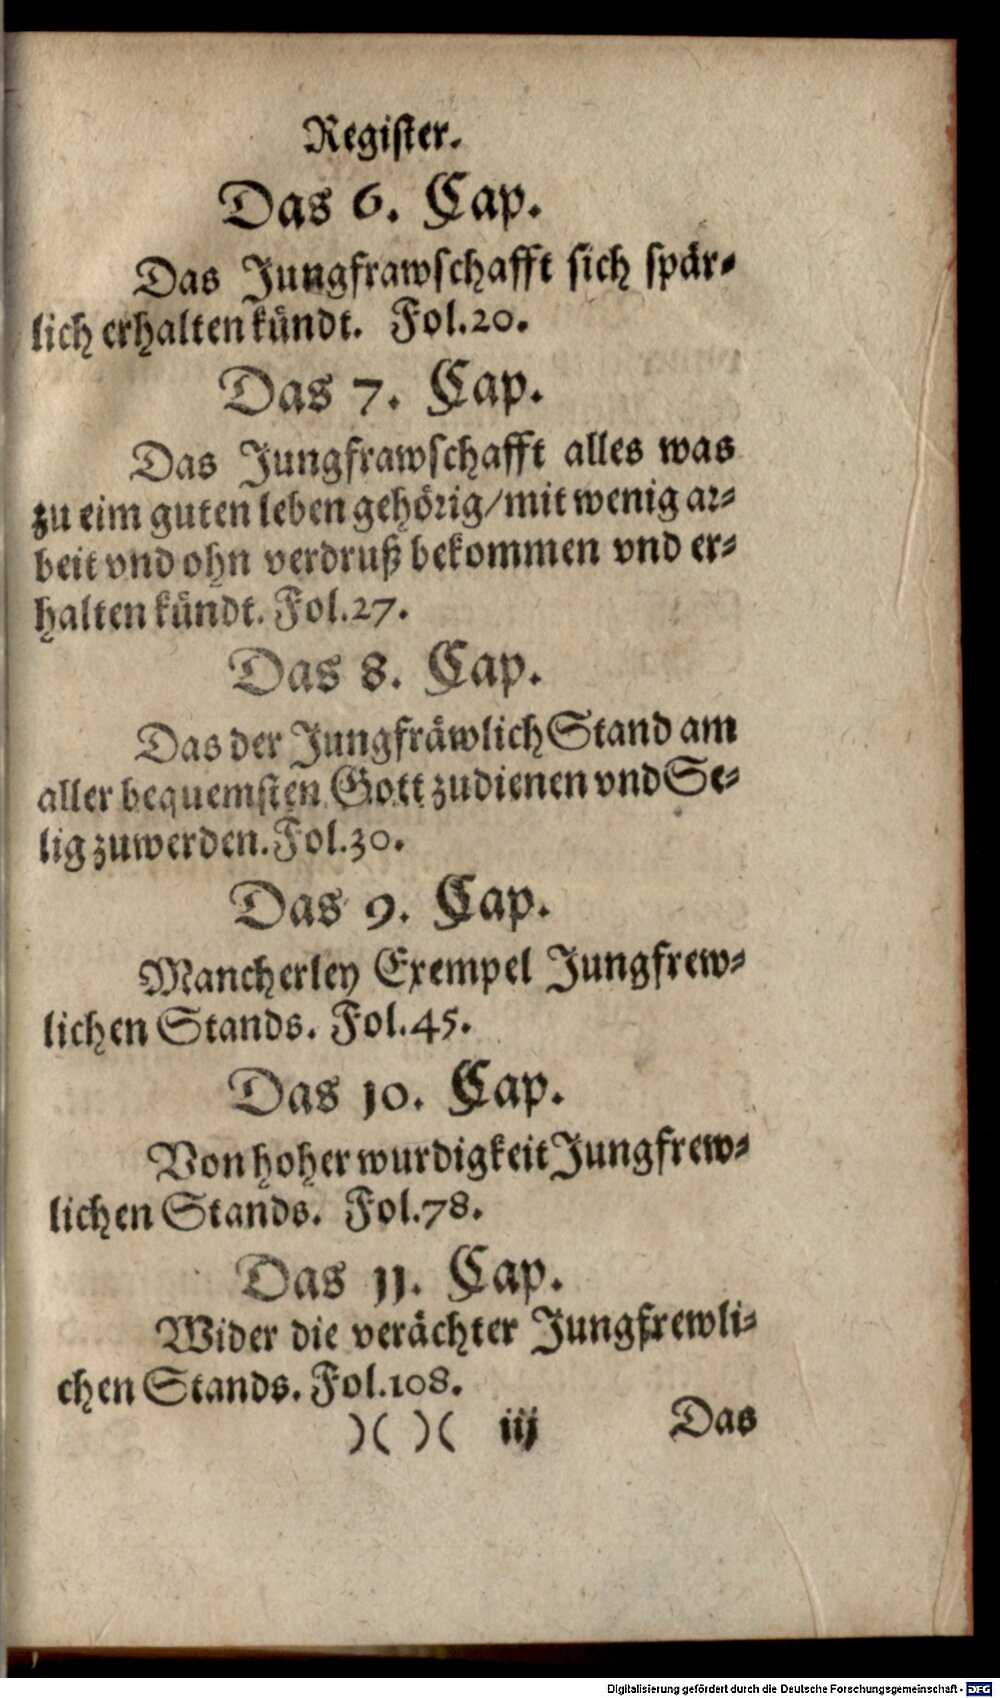 Register.
Das 6. Cap.
Das Jungfrawschafft sich spär-
lich erhalten kündt. Fol.20.
Das 7. Cap.
Das Jungfrawschafft alles was
zu eim guten leben gehörig/mit wenig ar-
beit vnd ohn verdruß bekommen vnd er-
halten kündt. Fol.27.
Das 8. Cap.
Das der Jungfräwlich Stand am
aller bequemsten Gott zudienen vnd Se-
lig zuwerden. Fol.30.
Das 9. Cap.
Mancherley Exempel Jungfrew-
lichen Stands. Fol.45.
Das 10. Cap.
Von hoher wurdigkeit Jungfrew-
lichen Stands. Fol.78.
Das 11. Cap.
Wider die verächter Jungfrewli-
chen Stands. Fol.108.
)( )( iij Das
Digitalisierung gefördert durch die Deutsche Forschungsgemeinschaft - DFG